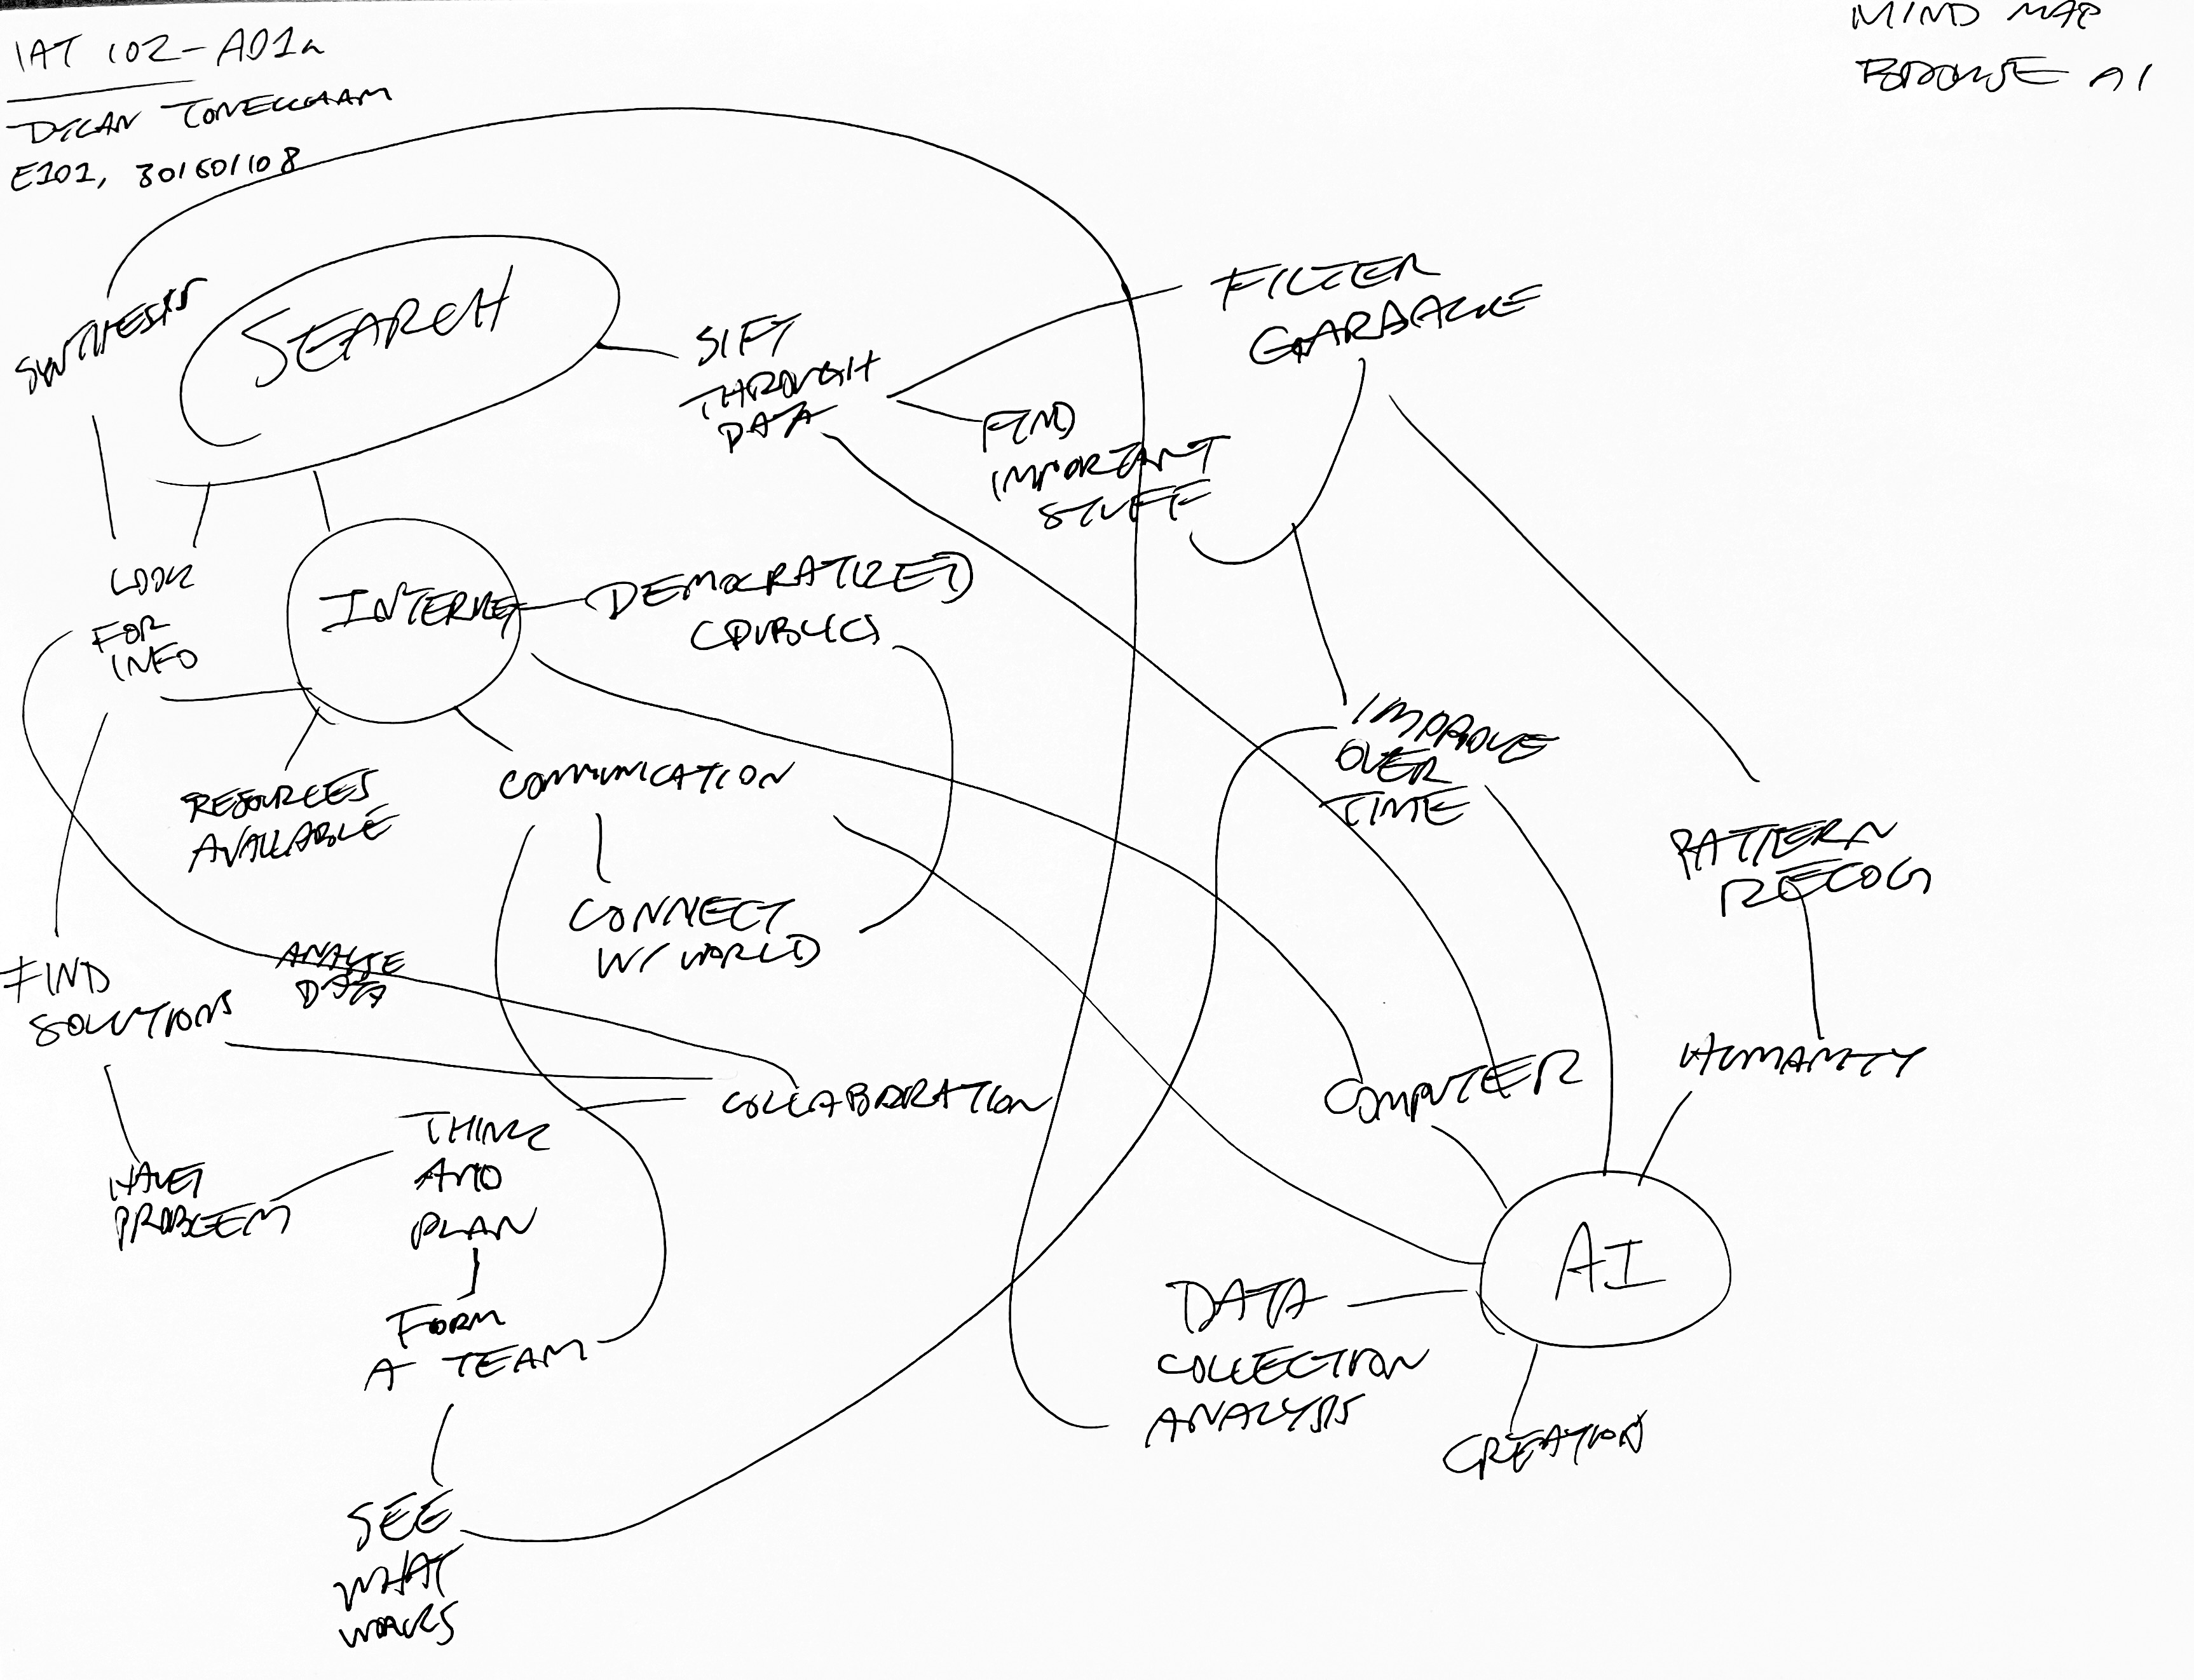 IAT 102-AD1a
DYLAN
E101, 301601108
MIND MAP
BROWSE AI
SYNTHESIS
SEARCH
SIFT
THROUGH
DATA
FILTER
GARBAGE
FIND
IMPORTANT
STUFF
LOOK
FOR
INFO
INTERNET
DEMOCRATIZED
(PUBLIC)
RESOURCES
AVAILABLE
COMMUNICATION
CONNECT
W/ WORLD
IMPROVE
OVER
TIME
PATTERN
RECOG
FIND
SOLUTIONS
DATA
COLLABORATION
COMPUTER
HUMANITY
PROBLEM
THINK
AND
PLAN
FORM
A TEAM
SEE
WHAT
WORKS
DATA
COLLECTION
ANALYSIS
AI
CREATION